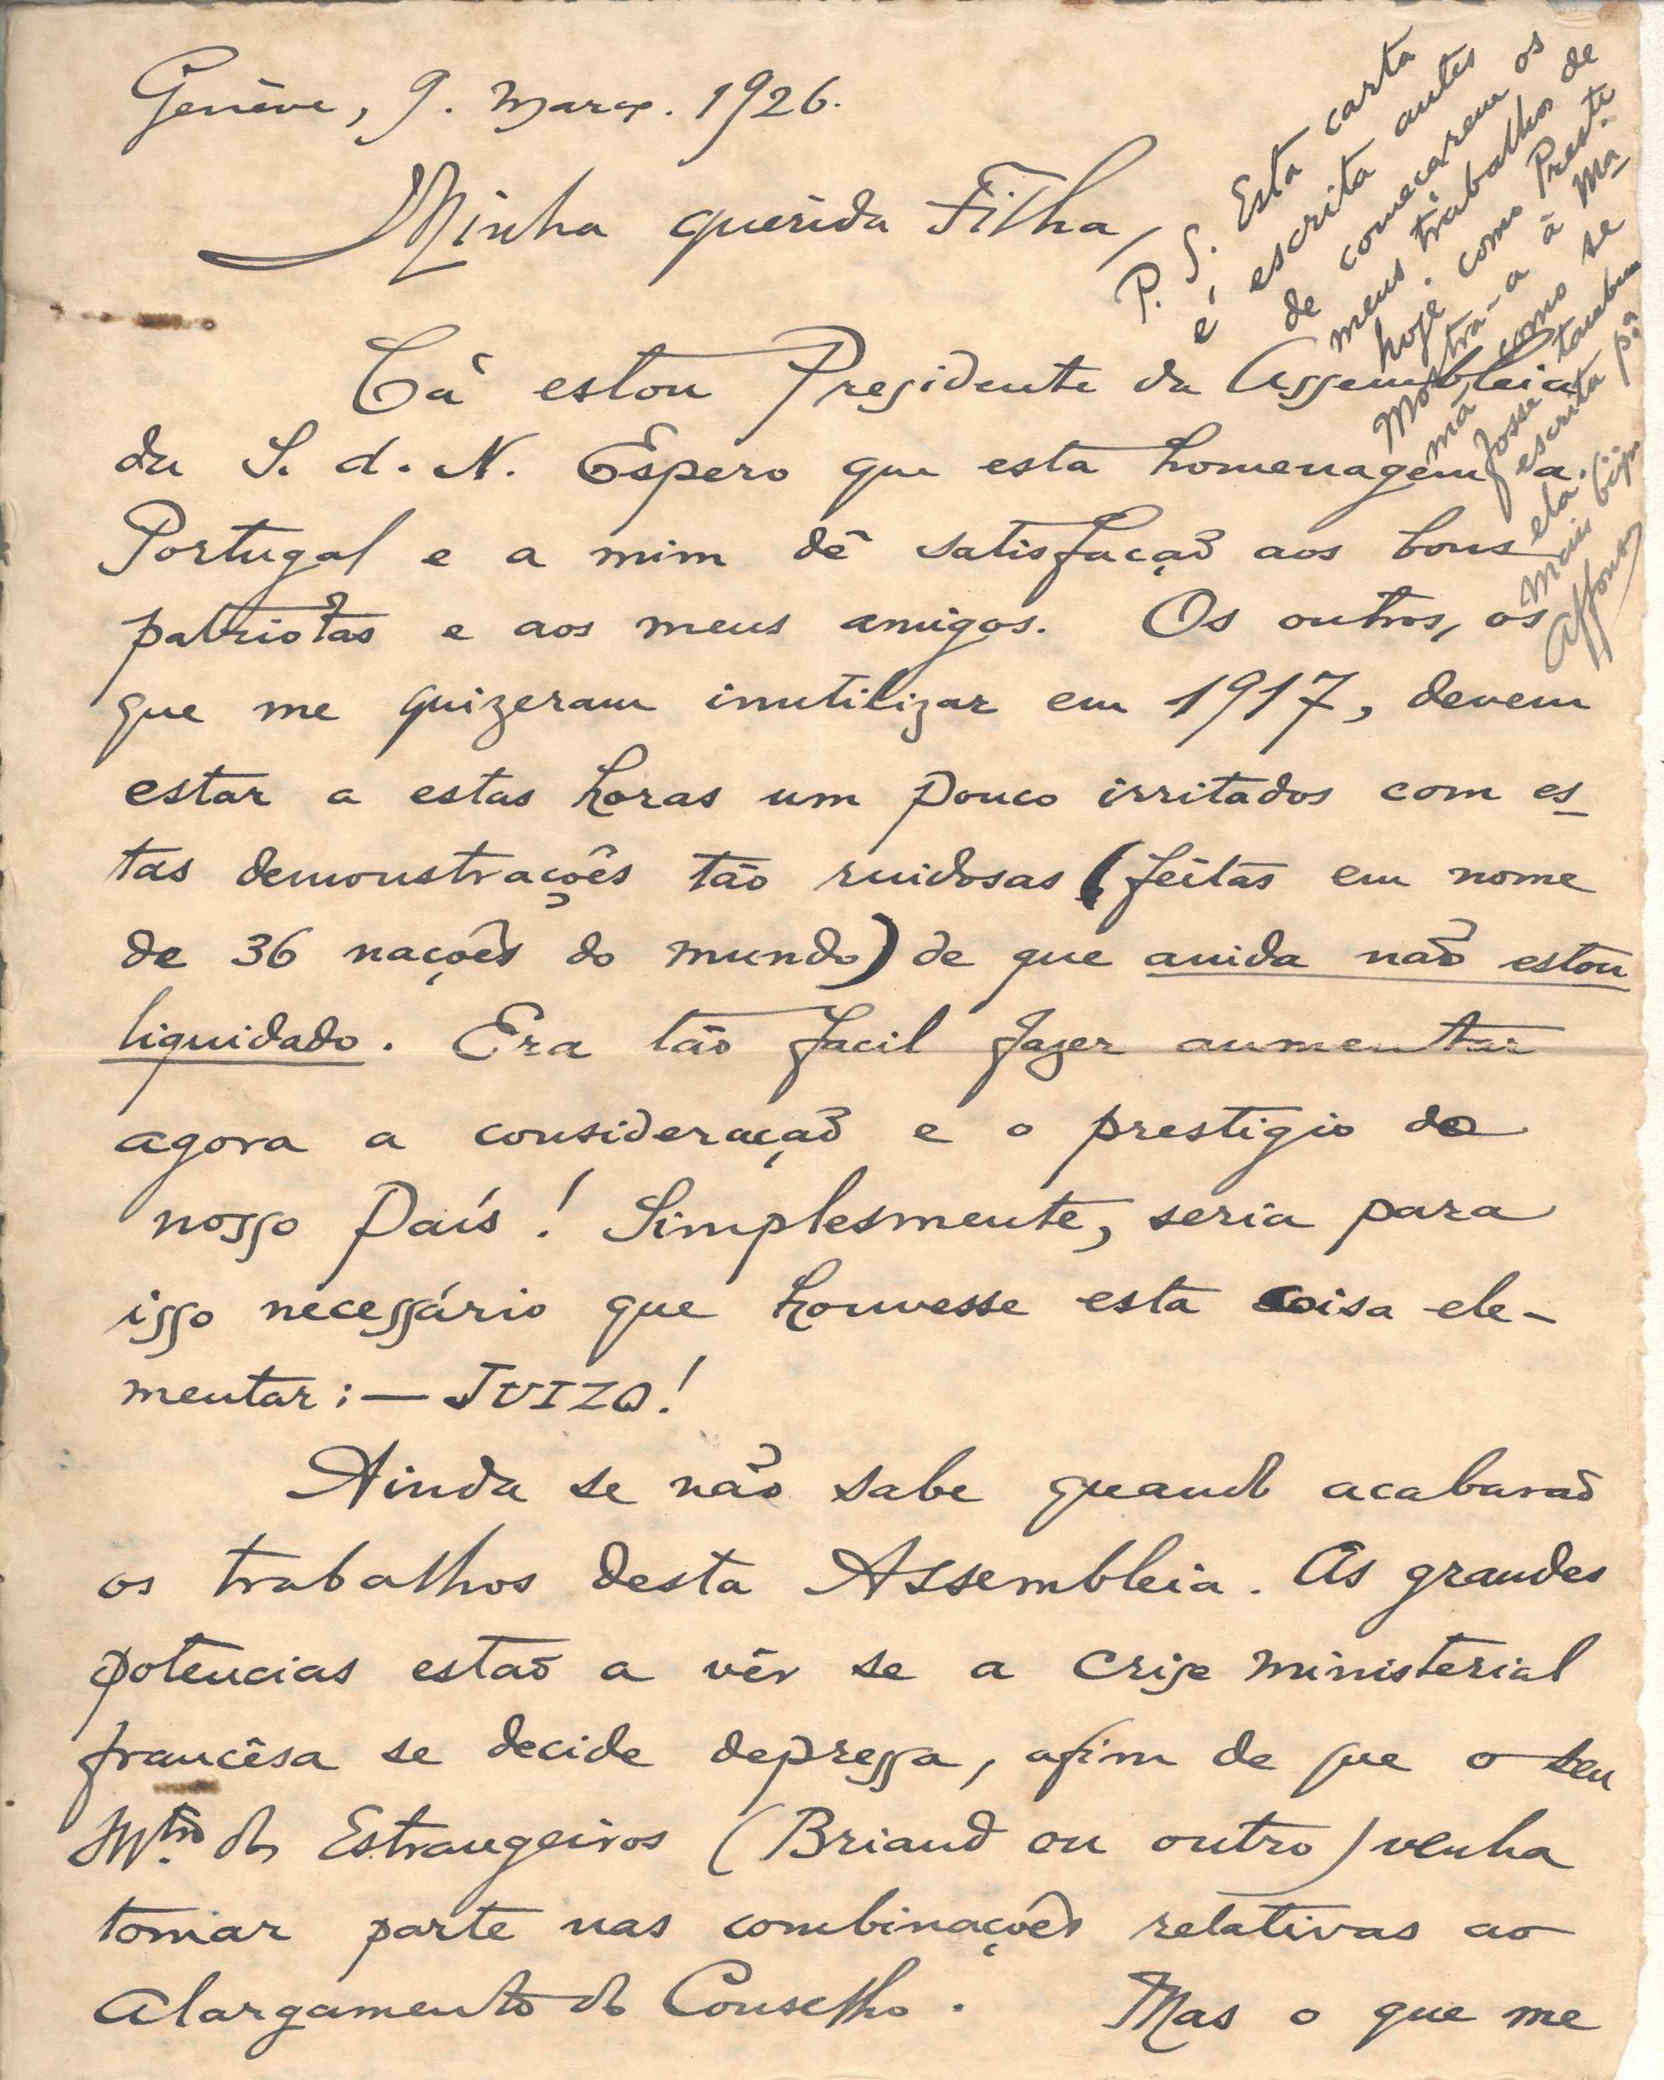 Genève, 9. Março. 1926.
Minha querida Filha,
Cá estou Presidente da Assembleia
da S. d. N. Espero que esta homenagem a
Portugal e a mim dê satisfação aos bons
patriotas e aos meus amigos. Os outros, os
que me quizeram inutilizar em 1917, devem
estar a estas horas um pouco irritados com es-
tas demonstrações tão ruidosas (feitas em nome
de 36 nações do mundo) de que ainda não estou
liquidado. Era tão facil fazer aumentar
agora a consideração e o prestigio do
nosso País! Simplesmente, seria para
isso necessário que houvesse esta coisa ele-
mentar: — JUIZO!
Ainda se não sabe quando acabarão
os trabalhos desta Assembleia. As grandes
potencias estão a vêr se a crise ministerial
francêsa se decide depressa, afim de que o seu
Mtro. dos Estrangeiros (Briand ou outro) venha
tomar parte nas combinações relativas ao
alargamento do Conselho. Mas o que me
P. S. Esta carta
é escrita antes
de começarem os
meus trabalhos de
hoje como Preste.
Mostra-a à Ma-
mã, como se
fosse tambem
escrita pa
ela.
Mais bjs
Affonso